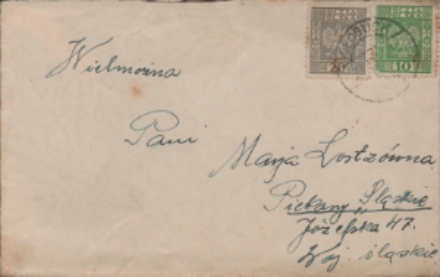 POCZTA POLSKA
POCZTA POLSKA
10
Wielmożna
Pani
Maria Lostzówna
Piekary Śląskie
Józefska 47.
Woj. śląskie